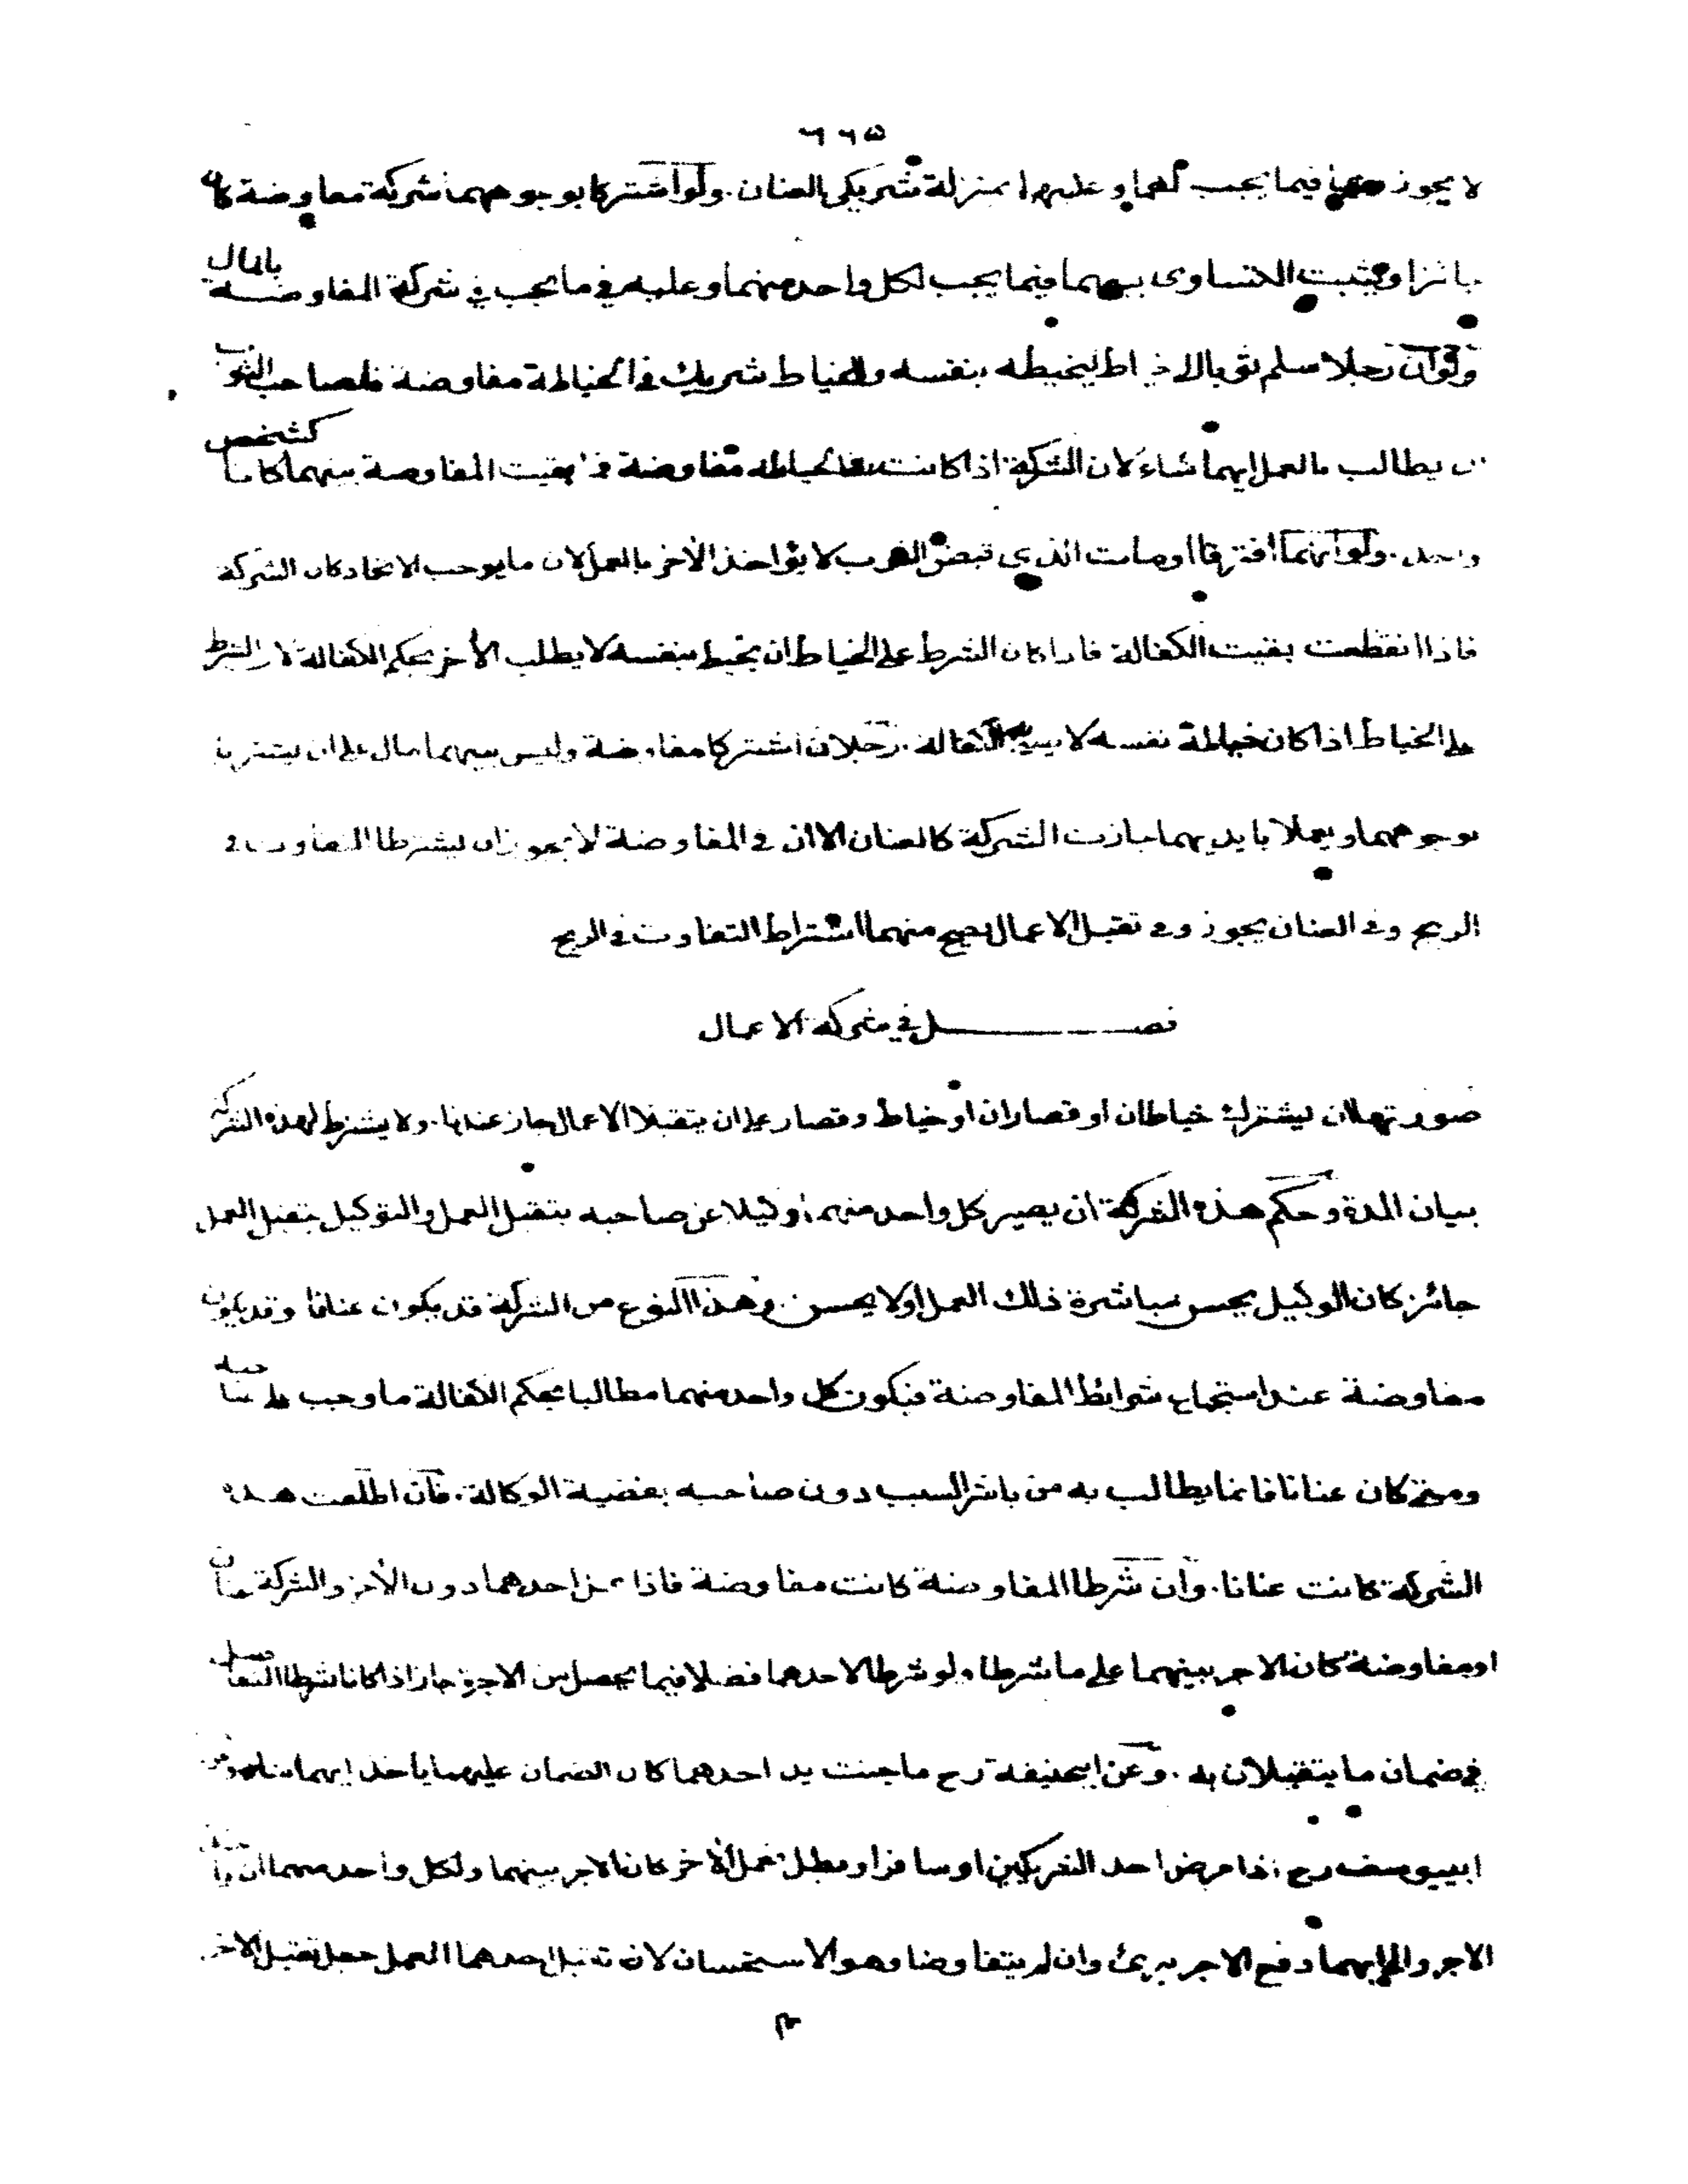 ٦٦٥
لا يجوز فيما يجب لهما وعليهما بمنزلة شريكي العنان . ولو اشتركا بوجوههما شركة مفاوضة كان
جائزا ويثبت التساوى بينهما فيما يجب لكل واحد منهما وعليه في ما يجب في شركة المفاوضة بالمال
ولو ان رجلا سلم ثوبا الى خياط ليخيطه بنفسه وللخياط شريك في الخياطة مفاوضة فلصاحب الثوب
ان يطالب بالعمل ايهما شاء لان الشركة اذا كانت مفاوضة بقيت المفاوضة بينهما كانا كشخص
واحد . ولو انهما افترقا او مات الذي قبض الثوب لا يؤاخذ الأخر بالعمل لان ما يوجب الاتحاد كان الشركة
فاذا انقطعت بقيت الكفالة فاذا كان الشرط على الخياط ان يخيط بنفسه لا يطلب الأخر بحكم الكفالة لان الشرط
على الخياط اذا كان خياطة نفسه لا الكفالة . رجلان اشتركا مفاوضة وليس بينهما مال على ان يشتريا
بوجوههما ويعملا بايديهما جازت الشركة كالعنان الا ان في المفاوضة لا يجوز ان يشترطا التفاوت في
الربح وفي العنان يجوز وفي تقبل الاعمال يصح منهما اشتراط التفاوت في الربح
فصل في شركة الاعمال
صورتها ان يشترك خياطان او قصاران او خياط وقصار على ان يتقبلا الاعمال جاز عندنا . ولا يشترط لهذه الشركة
بيان المدة وحكم هذه الشركة ان يصير كل واحد منهما وكيلا عن صاحبه بتقبل العمل والتوكيل بتقبل العمل
جائز كان الوكيل يحسن مباشرة ذلك العمل او لا يحسن . وهذا النوع من الشركة قد يكون عنانا وقد يكون
مفاوضة عند استجماع شرائط المفاوضة فيكون كل واحد منهما مطالبا بحكم الكفالة ما وجب على صاحبه
ومتى كان عنانا فانما يطالب به من باشر السبب دون صاحبه بقضية الوكالة . فان اطلقت هذه
الشركة كانت عنانا . وان شرطا المفاوضة كانت مفاوضة فاذا عمل احدهما دون الأخر والشركة عنان
او مفاوضة كان الاجر بينهما على ما شرطا ولو شرطا لاحدهما فضلا فيما يحصل من الاجرة جاز اذا كانا شرطا التفاضل
في ضمان ما يتقبلان به . وعن ابيحنيفة رح ما جنت يد احدهما كان الضمان عليهما يأخذ ايهما شاء وعن
ابييوسف رح اذا مرض احد الشريكين او سافر او بطل فعمل الأخر كان الاجر بينهما ولكل واحد منهما ان يأخذ
الاجر والى ايهما دفع الاجر برئ وان لم يتفاوضا وهو الاستحسان لان تقبل احدهما العمل جعل تقبل الاخر